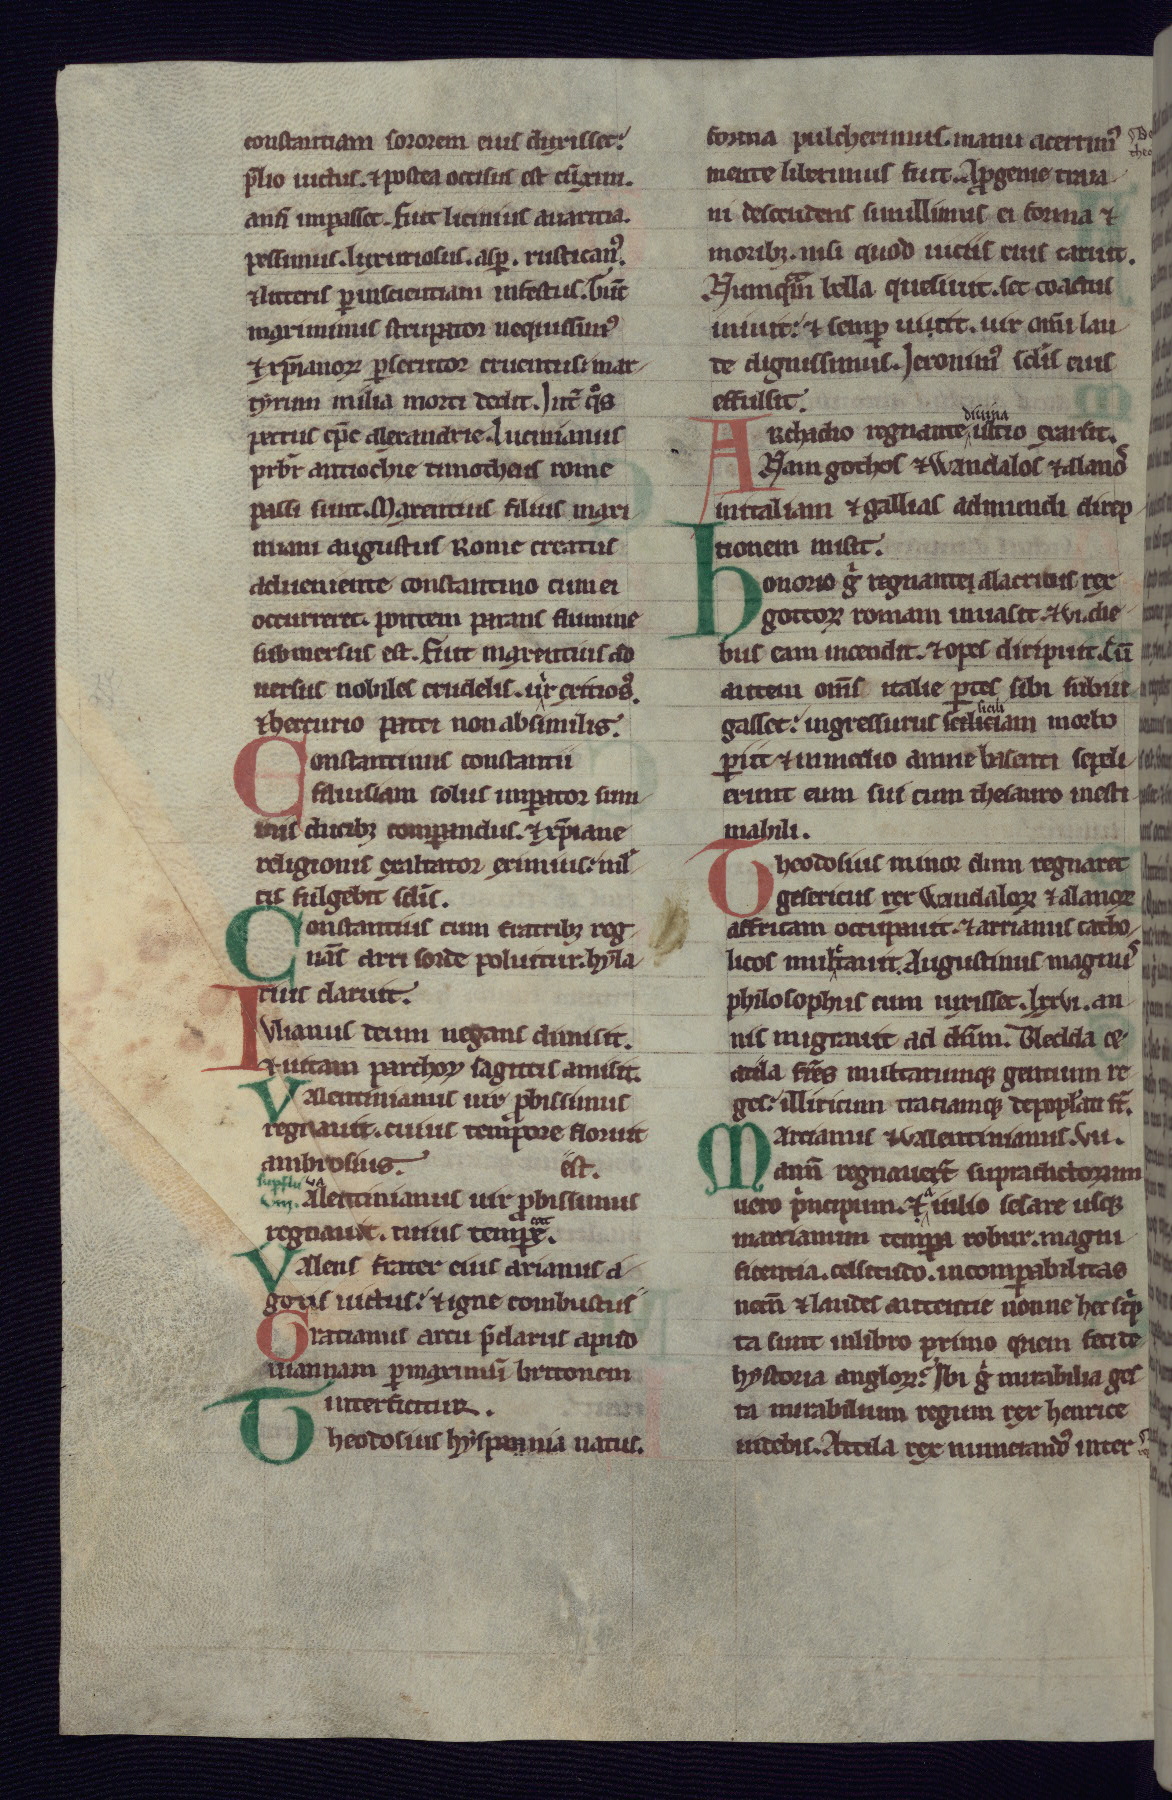 constantiam sororem eius duxisset.
p̄lio uictus. ⁊ postea occisus est cū xiiii.
ann̄ imp̄asset. Fuit licinius auaritia.
pessimus. luxuriosus. asp̄. rusticanꝰ.
⁊ litteris ꝑ inscientiam infestus.
maximinus stupator nequissimꝰ
⁊ xp̄ianoꝝ ꝑsecutor cruentus: mar
tyrum milia morti dedit. Int̄ qͦs
petrus ep̄c alexandrie. Lucinianus
prb̄r antiochie timotheus rome
passi sunt. Maxentius filius maxi
miani augustus Rome creatus
adueniente constantino cum ei
occurreret. pontem parans flumine
submersus est. Fuit maxentius ad
uersus nobiles crudelis.
⁊ hercurio patri non absimilis.
Constantinus constantii
filius iam solus imp̄ator sum
mis ducibꝫ comparandus. ⁊ xp̄iane
religionis exaltator eximius:
tis fulgebit sc̄lis.
Constantius cum fratribꝫ reg
nās arri sorde poluitur. hyla
rius claruit.
Iulianus deum negans dimisit.
⁊ uitam parthoꝝ sagittis amisit.
Valentinianus uir ꝓbissimus
regnauit. cuius tempore floruit
ambrosius. est.
Valentinianus uir ꝓbissimus
regnauit. cuius tempore.
Valens frater eius arianus a
gotis uictus: ⁊ igne combustus
Gratianus arcu p̄clarus apud
uiannam ꝑ maximū brittonem
interficitur.
Theodosius hyspannia natus.
forma pulcherimus. manu acerrimꝰ
mente liberimus fuit. A progenie traia
ni descendens simillimus ei forma ⁊
moribꝫ. nisi quod uiciis eius caruit.
Numquā bella quesiuit. set coactus
iniuit: ⁊ semp̄ uicit. uir om̄i lau
de dignissimus. Ieronimꝰ sc̄lis eius
effulsit.
diuina
Archadio regnante, ultio exarsit.
Nam gothos ⁊ Wandalos ⁊ alanos
in italiam ⁊ gallias ad mundi direp
tionem misit.
Honorio g̊ regnante, alaricus rex
gottoꝝ romam inuasit. ⁊ vi. die
bus eam incendit. ⁊ opes diripuit. Cū
autem om̄s italie ꝑtes sibi subiu
gasset: ingressurus siciliam morbo
ꝑiit ⁊ in medio amne basenti sepeli
erunt eum sui cum thesauro inesti
mabili.
Theodosius minor dum regnaret
gesericus rex Wandaloꝝ ⁊ alanoꝝ
affricam occupauit. ⁊ arrianus catho
licos mulctauit. Augustinus magnus
philosophus cum uixisset. lxxvi. an
nis migrauit ad dn̄m. Bledda ⁊
atila fr̄es multarumqꝫ gentium re
ges: illiricum traciamqꝫ depopl̄ati st̄.
Martianus ⁊ Valentinianus. vii.
ann̄ regnauer̄t supradictorum
uero p̄ncipum. ⁊ a iulio cesare usqꝫ
marcianum tempora robur. magni
ficentia. celsitudo. incomparabilitas
nec̄n ⁊ laudes autentie nonne hec scrip
ta sunt in libro primo quem feci de
hystoria angloꝝ: Ibi g̊ mirabilia ges
ta mirabilium regum rex henrice
uidebis. Attila rex numerandꝰ inter